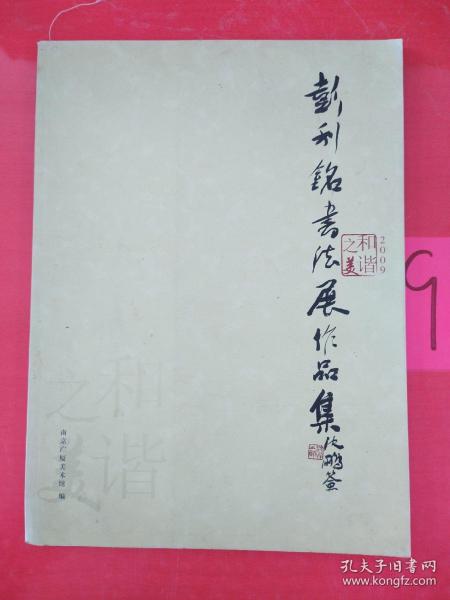 彭利銘書法展作品集
沈鹏签
2009
和谐
之美
和谐
之美
南京广厦美术馆 编
9
孔夫子旧书网
www.kongfz.com